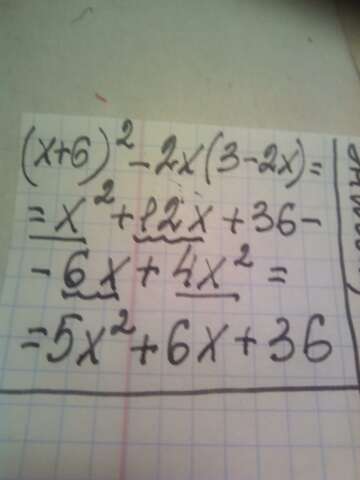 (x+6)² - 2x(3-2x) =
= x² + 12x + 36 -
- 6x + 4x² =
= 5x² + 6x + 36